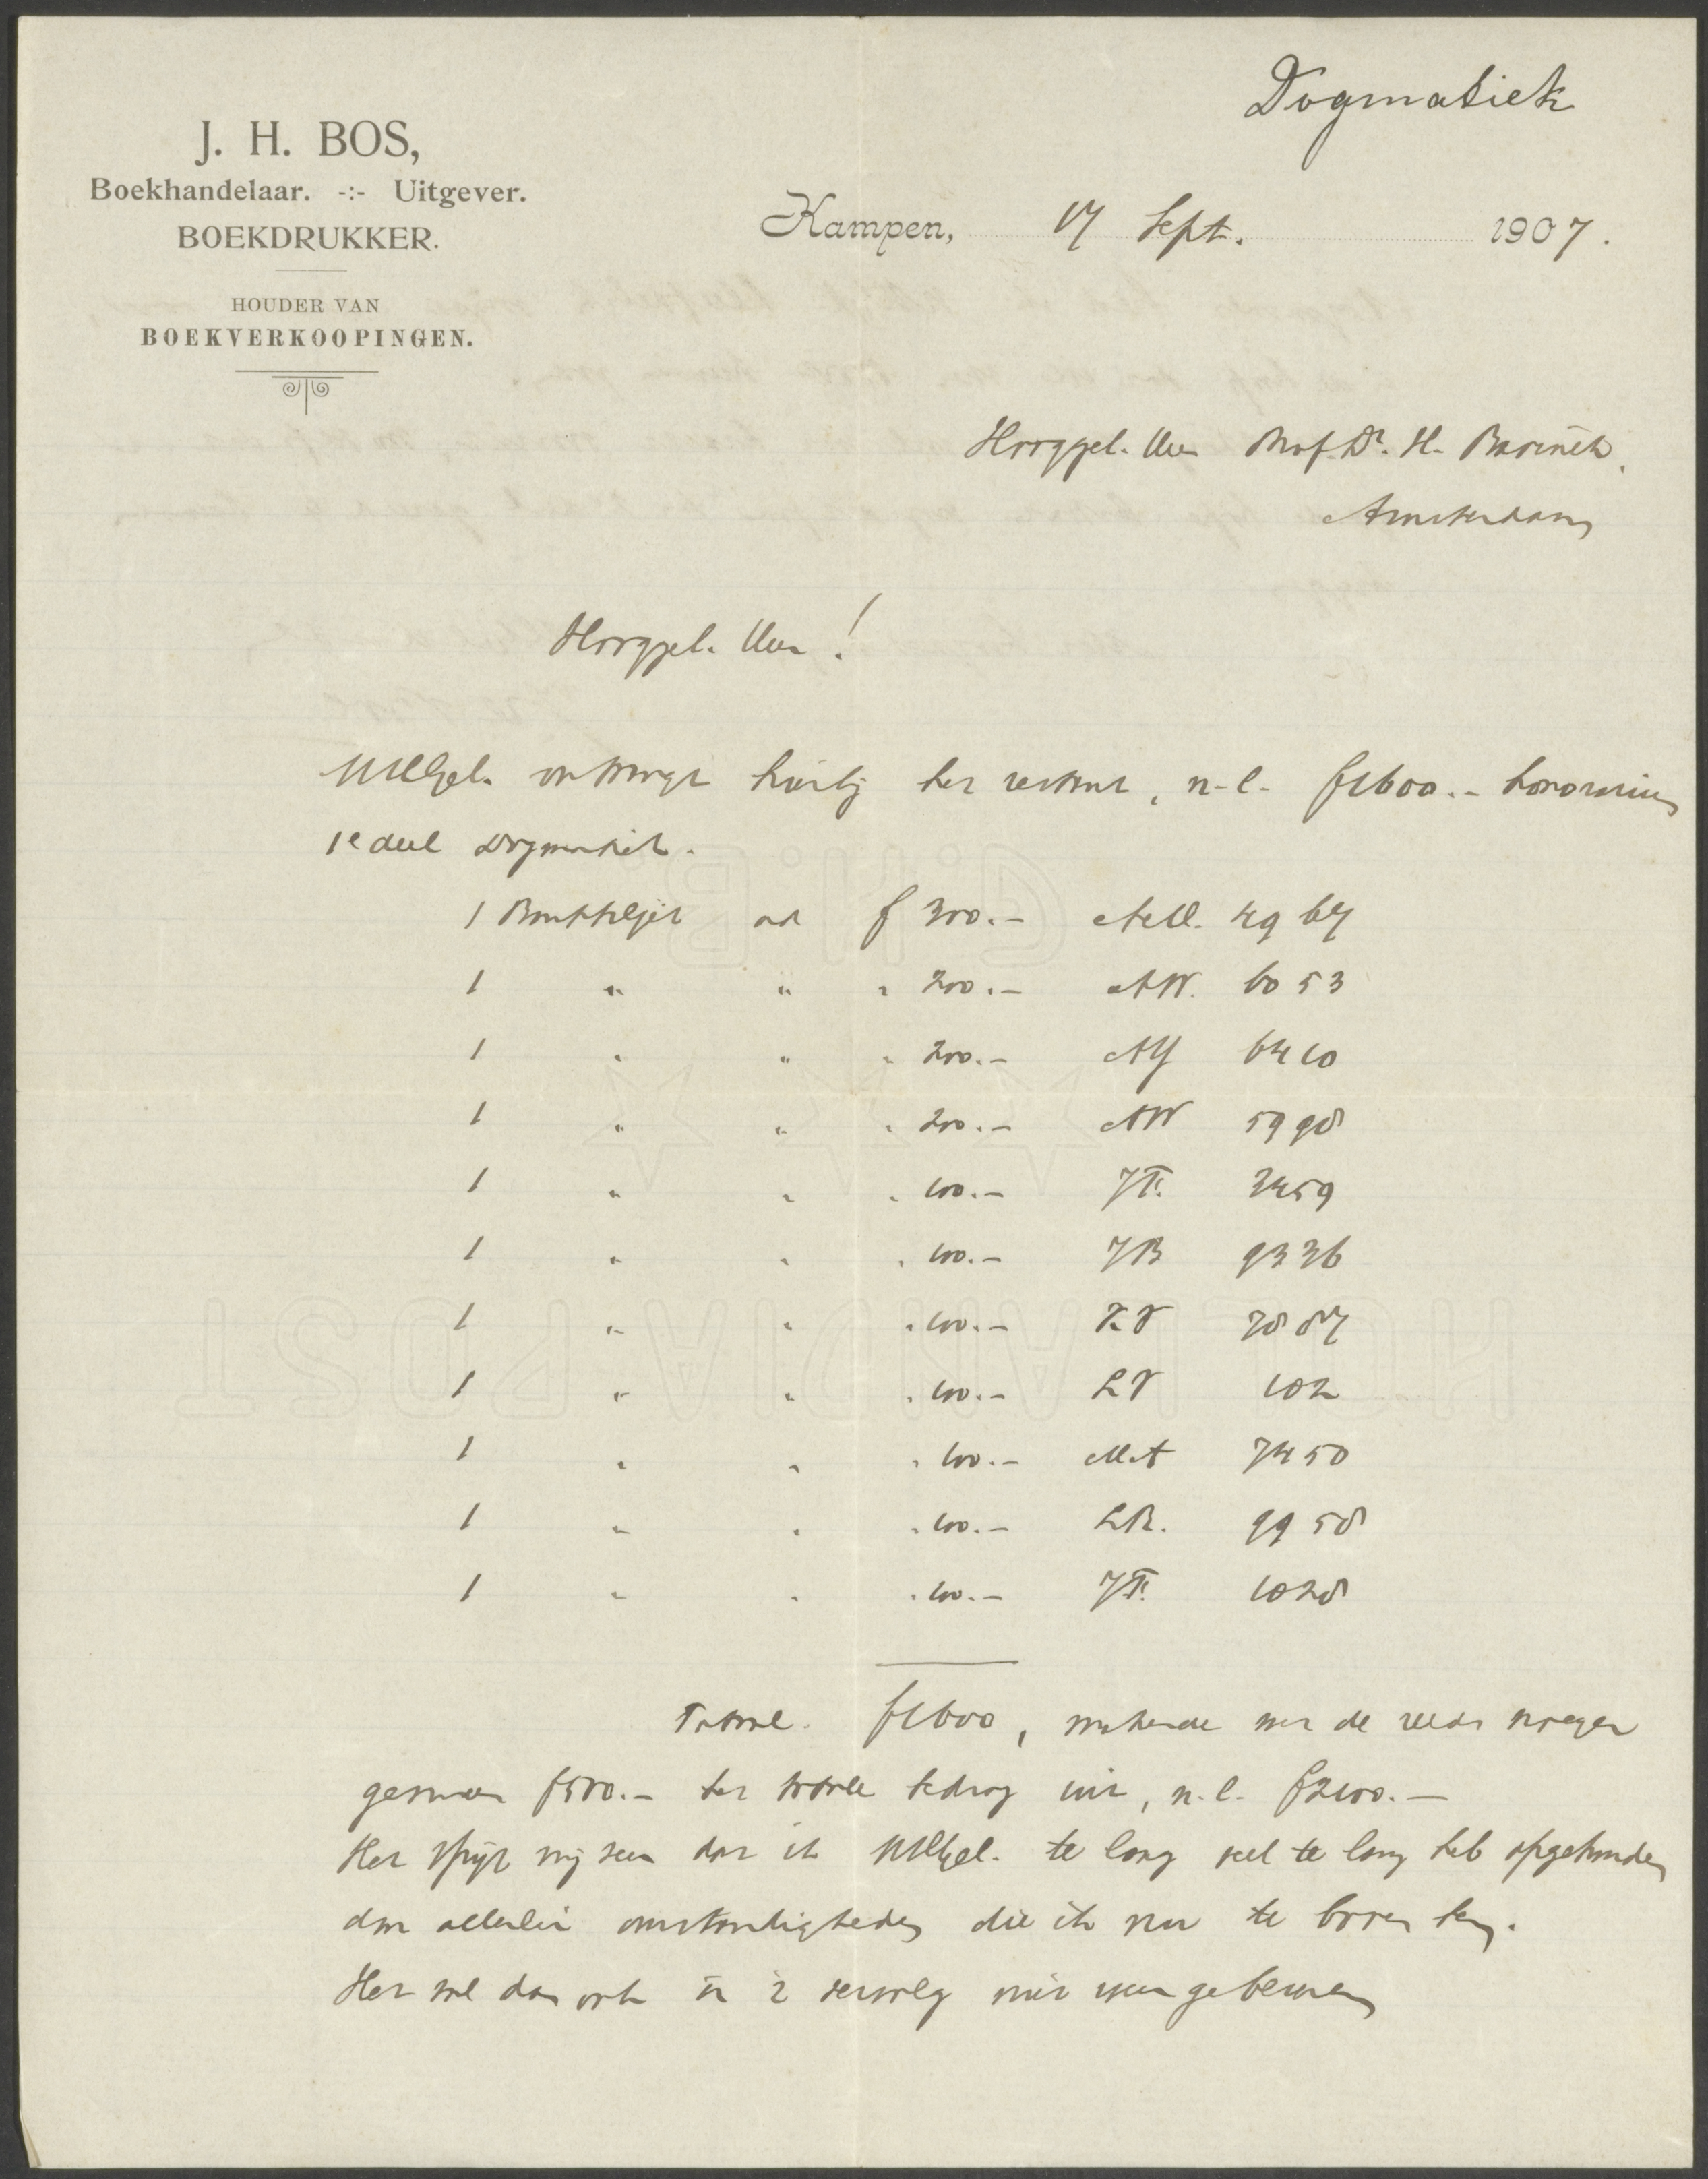 Dogmatiek
J. H. BOS,
Boekhandelaar. -:- Uitgever.
BOEKDRUKKER.
HOUDER VAN
BOEKVERKOOPINGEN.
Kampen, 17 Sept. 1907.
Hooggel. Heer Prof. Dr. H. Bavinck,
Amsterdam
Hooggel. Heer!
UHEdGel. ontvangt hierbij het restant, n.l. f1600.- honorarium
1e deel Dogmatiek.
1 Bankbiljet ad f 300.- AM. 4967
1 " " " 200.- AW. 6053
1 " " " 200.- AY 6410
1 " " " 200.- AW 5998
1 " " " 100.- JT. 3459
1 " " " 100.- JB 9336
1 " " " 100.- KV 7887
1 " " " 100.- LV 102
1 " " " 100.- MA 7450
1 " " " 100.- LR. 9958
1 " " " 100.- JT. 1028
Totaal. f1600, makende met de reeds vroeger
gezonden f500.- het totale bedrag uit, n.l. f2100.-
Het spijt mij zeer dat ik UHEdGel. te lang veel te lang heb opgehouden
door allerlei omstandigheden die ik nu te boven ben.
Het zal dan ook in 't vervolg niet weer gebeuren
HOLLANDIA POST